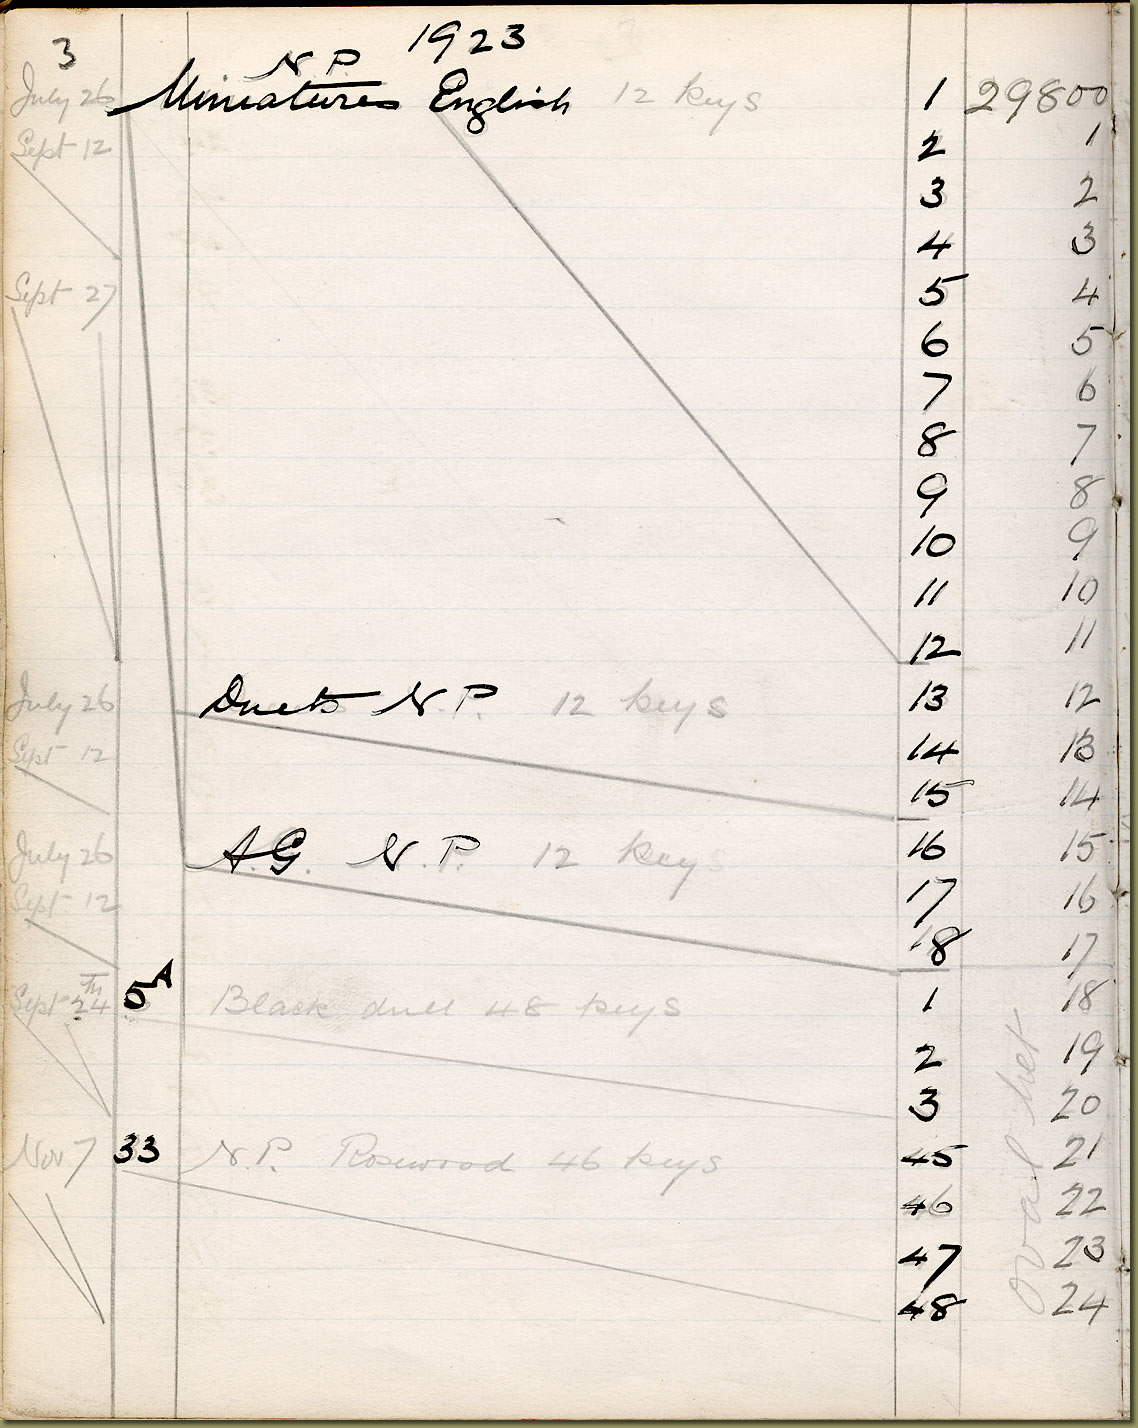 3 1923
N.P.
July 26 Miniatures English 12 keys 1 29800
Sept 12 2 1
3 2
4 3
Sept 27 5 4
6 5
7 6
8 7
9 8
10 9
11 10
12 11
July 26 Duets N.P. 12 keys 13 12
Sept 12 14 13
15 14
July 26 A.G. N.P. 12 keys 16 15
Sept 12 17 16
18 17
Sept 24th 5A Black dull 48 keys 1 18
2 19
3 20
Nov 7 33 N.P. Rosewood 46 keys 45 21
46 22
47 23
48 24
oval